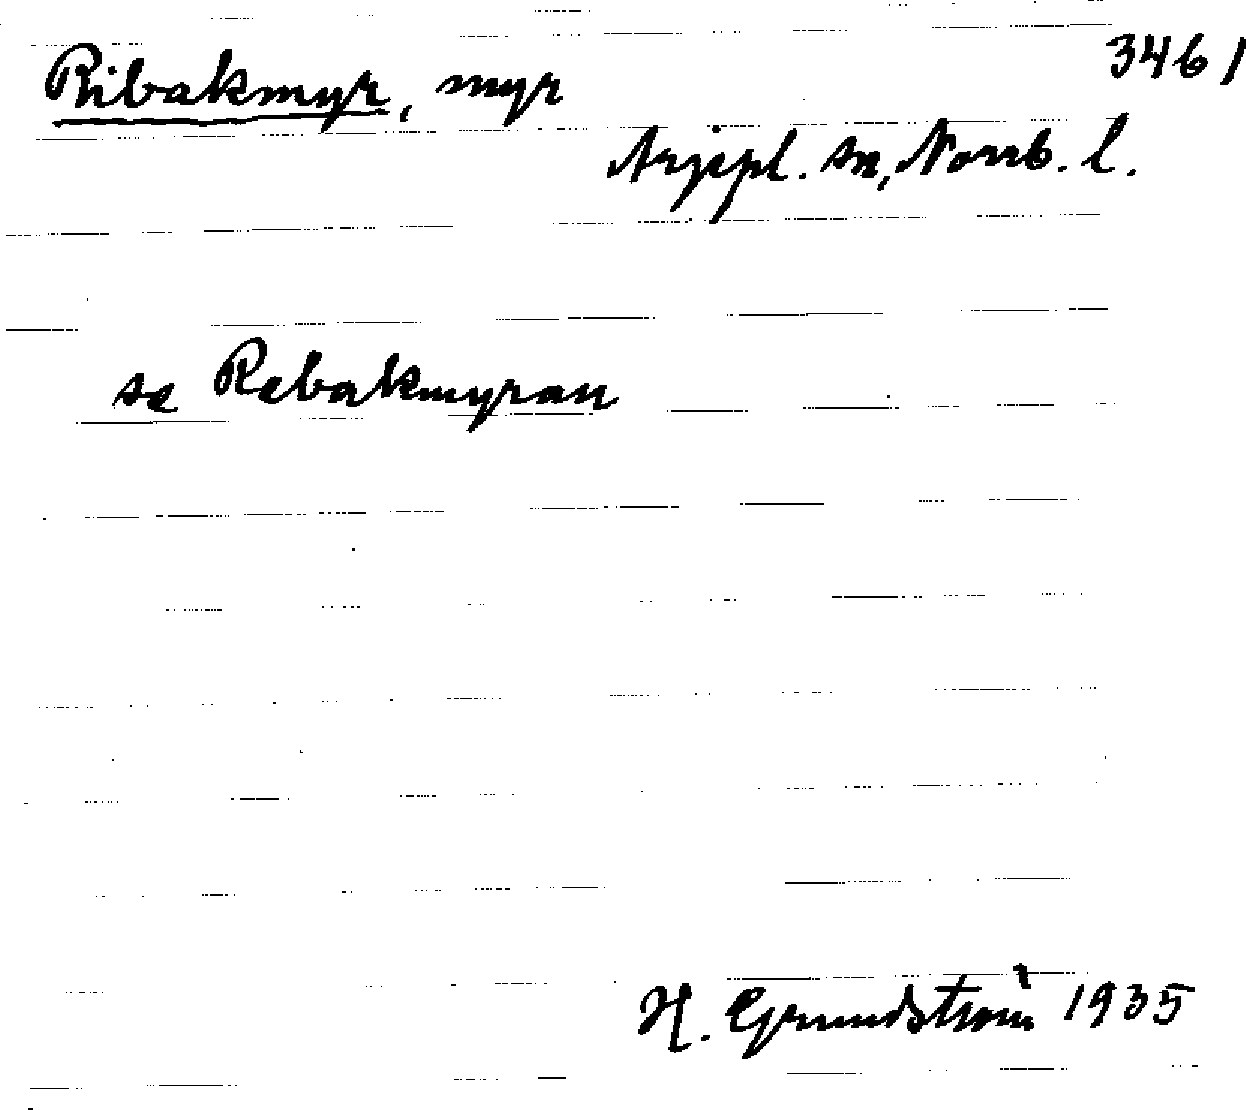 Ribakmyr, myr
3461
Arjepl. sn, Norrb. l.
se Rebakmyran
H. Grundström 1935